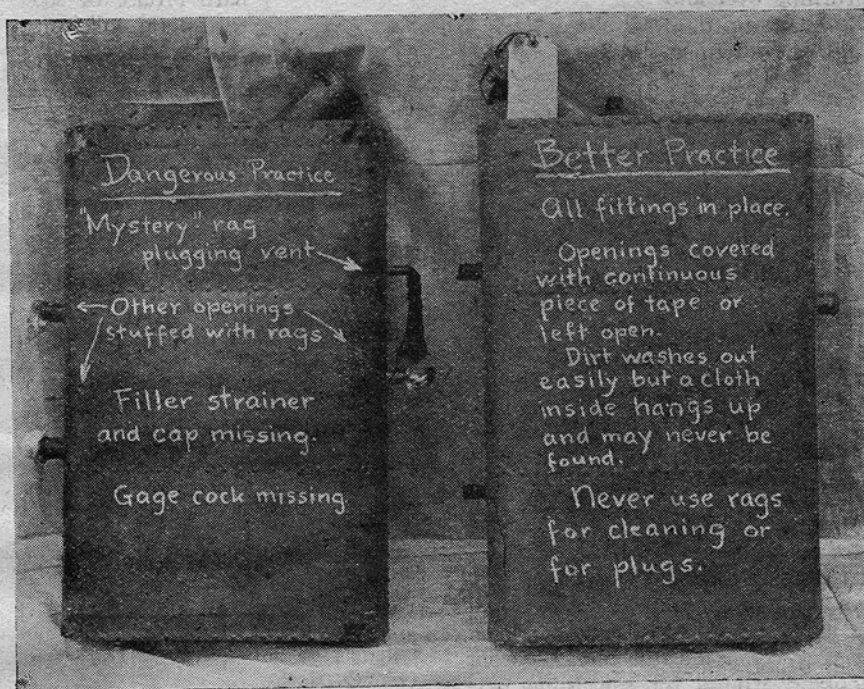 Dangerous Practice
"Mystery" rag
plugging vent
Other openings
stuffed with rags
Filler strainer
and cap missing.
Gage cock missing.
Better Practice
All fittings in place.
Openings covered
with continuous
piece of tape or
left open.
Dirt washes out
easily but a cloth
inside hangs up
and may never be
found.
Never use rags
for cleaning or
for plugs.